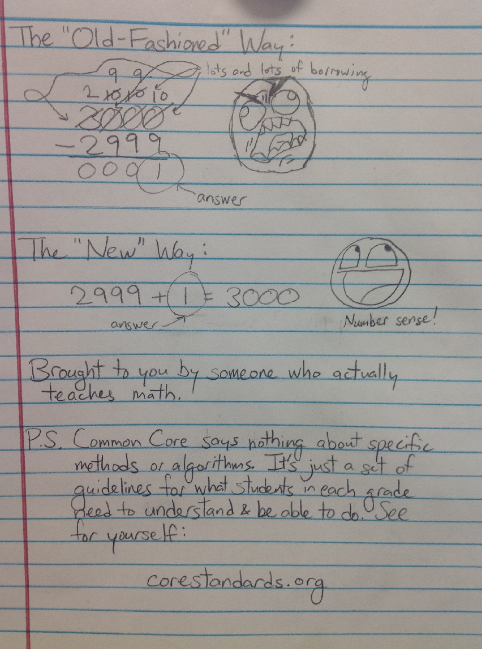 The "Old-Fashioned" Way:
lots and lots of borrowing
9 9
2 10 10 10
3000
- 2999
0001
answer
The "New" Way:
2999 + 1 = 3000
answer
Number sense!
Brought to you by someone who actually
teaches math.
P.S. Common Core says nothing about specific
methods or algorithms. It's just a set of
guidelines for what students in each grade
need to understand & be able to do. See
for yourself:
corestandards.org